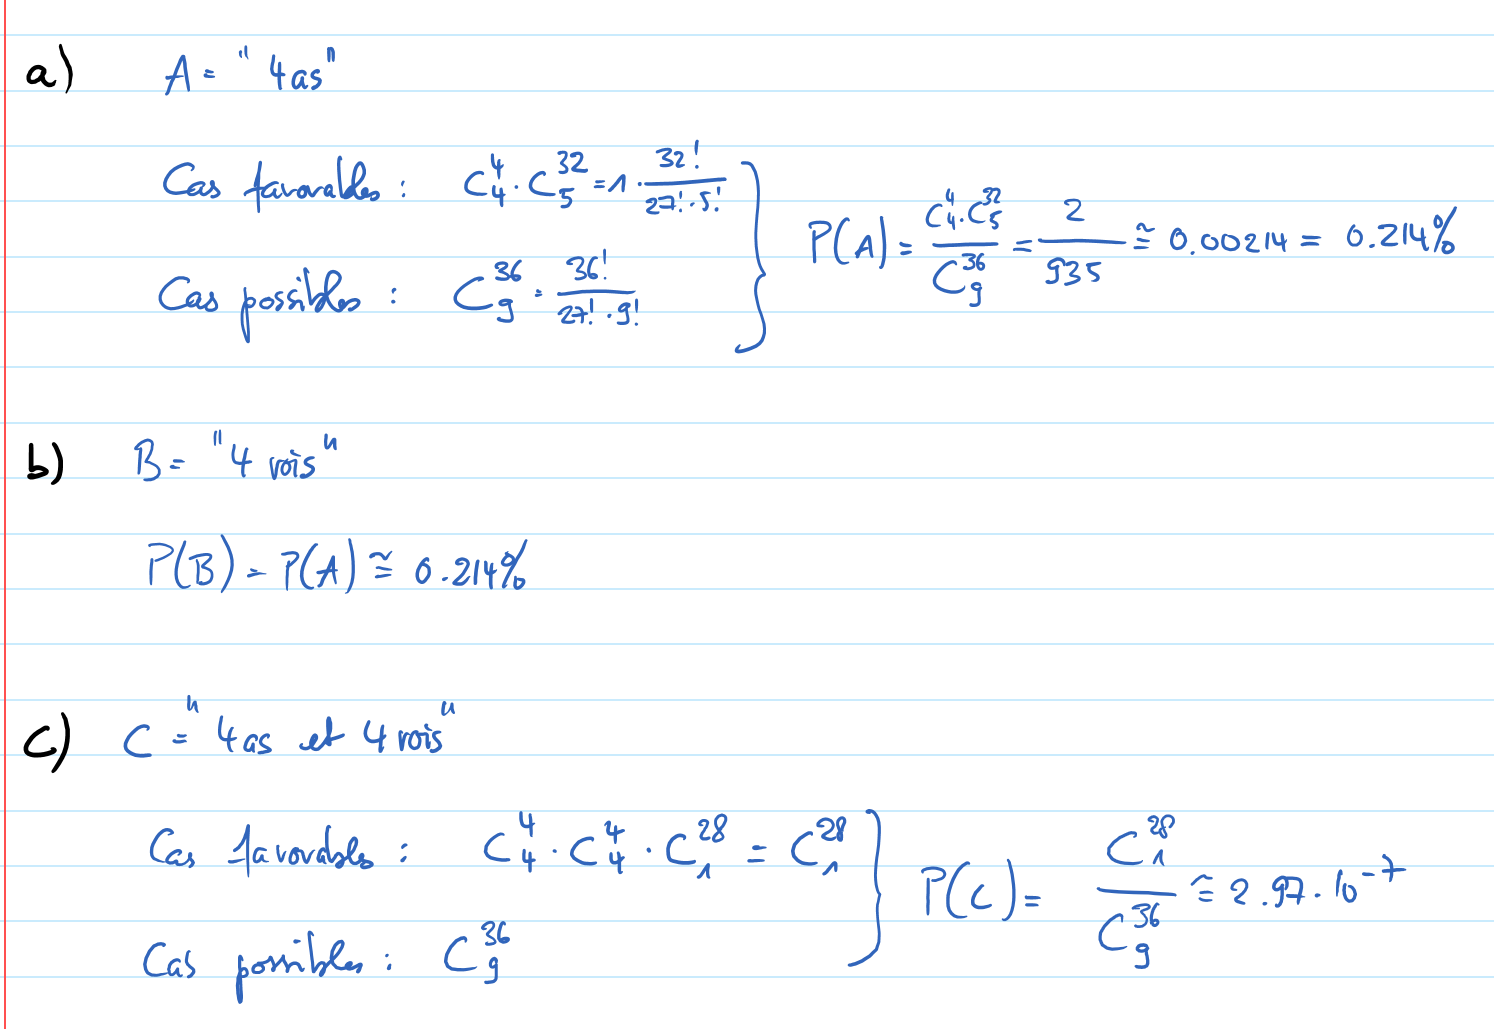 a) A = "4 as"
Cas favorables : C_4^4 · C_5^32 = 1 · 32!/(27! · 5!)
Cas possibles : C_9^36 = 36!/(27! · 9!)
P(A) = (C_4^4 · C_5^32)/C_9^36 = 2/935 ≅ 0.00214 = 0.214%
b) B = "4 rois"
P(B) = P(A) ≅ 0.214%
c) C = "4 as et 4 rois"
Cas favorables : C_4^4 · C_4^4 · C_1^28 = C_1^28
Cas possibles : C_9^36
P(C) = C_1^28/C_9^36 ≅ 2.97 · 10^-7